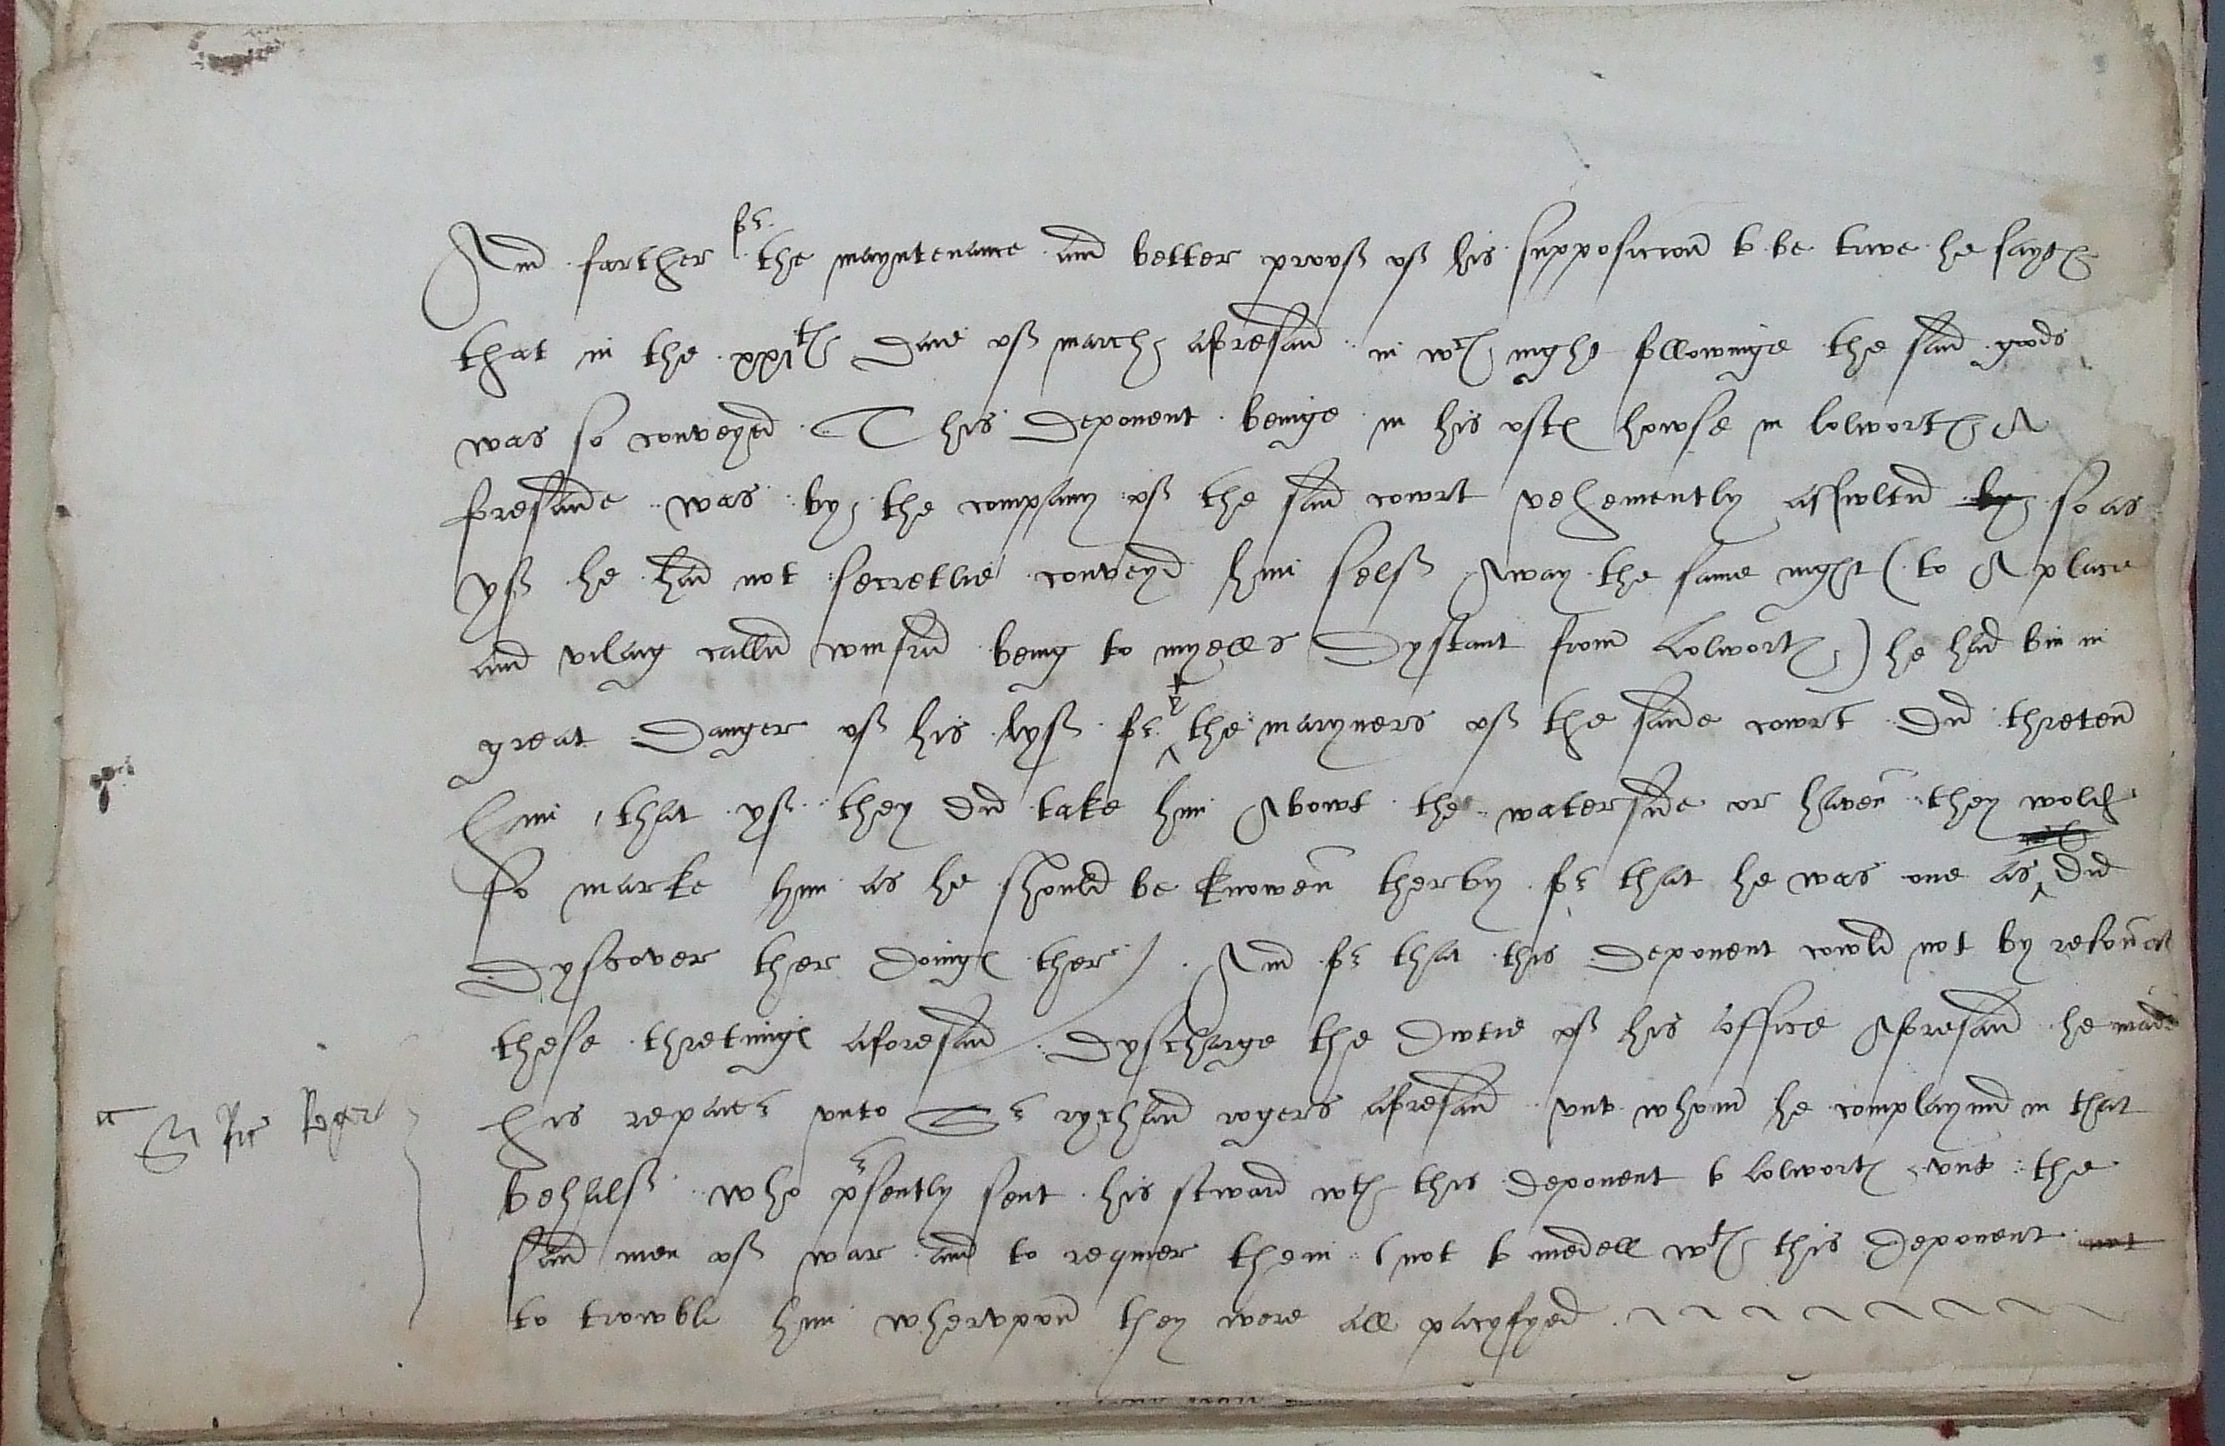 And farther for the mayntenance and better prouff off his supposicion to be trwe he sayeth
that in the xxith Daie off march aforesaid in wch nyght followinge the said goods
was so conveyed This Deponent beinge in his ostes howse in lolworth A
foresaide was by the company off the said cowrt vehemently assvlted by so as
yff he had not secretlie conveyd him selff Away the same nyght ( to A place
and vilaig callid winfrid being to myells Dystant from Lolworth ) he had bin in
great Danger off his lyff for the maryners off the saide cowrt Did threten
him that yff they did take him Abowt the watersyde or haven they wold
so marke him as he should be knowen therby for that he was one as did
Dyscover ther Doings ther / And for that this Deponent cowld not by reson off
these thretnings aforesaid Dyscharge the Dwtie off his office Aforesaid he made
his repaier unto Sr rychard rogers aforesaid vnto whom he complaynid in that
behalff who presently sent his steward wth this Deponent to lolworth vnto the
said men off war and to requier them not to medell wth this Deponent nor
to trowble him whervpon they were all pacyfyed
Sr Ric Rogers